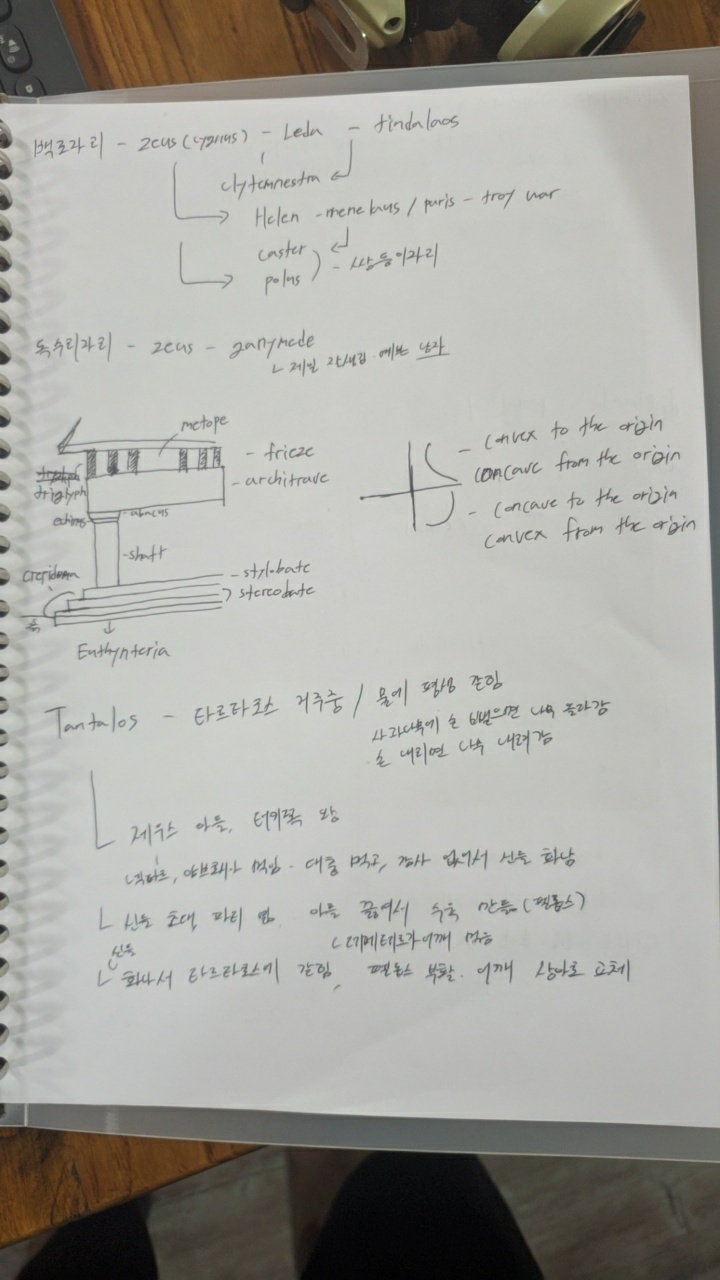 백조자리 - zeus (cygnus) - Leda - tindalaos
clytemnestra
Helen - menelaus / paris - troy war
caster
polus ) - 쌍둥이자리
독수리자리 - zeus - ganymede
ㄴ 제일 잘생김 예쁜 남자
metope
- frieze
- architrave
triglyph
echinus
- abacus
- shaft
crepidoma
- stylobate
stereobate
Euthynteria
- convex to the origin
concave from the origin
- concave to the origin
convex from the origin
Tantalos - 타르타로스 거주중 / 물에 평생 갇힘
사과나무에 손 뻗으면 나무 올라감
손 내리면 나무 내려감
ㄴ 제우스 아들, 터키쪽 왕
넥타르, 암브로시아 먹임 - 대충 먹고, 감사 없어서 신들 화남
ㄴ 신들 초대, 파티 엶. 아들 끓여서 수육 만듦 (펠롭스)
ㄴ 데메테르가 어깨 먹음
신들
ㄴ 화나서 타르타로스에 갇힘, 펠롭스 부활. 어깨 상아로 교체